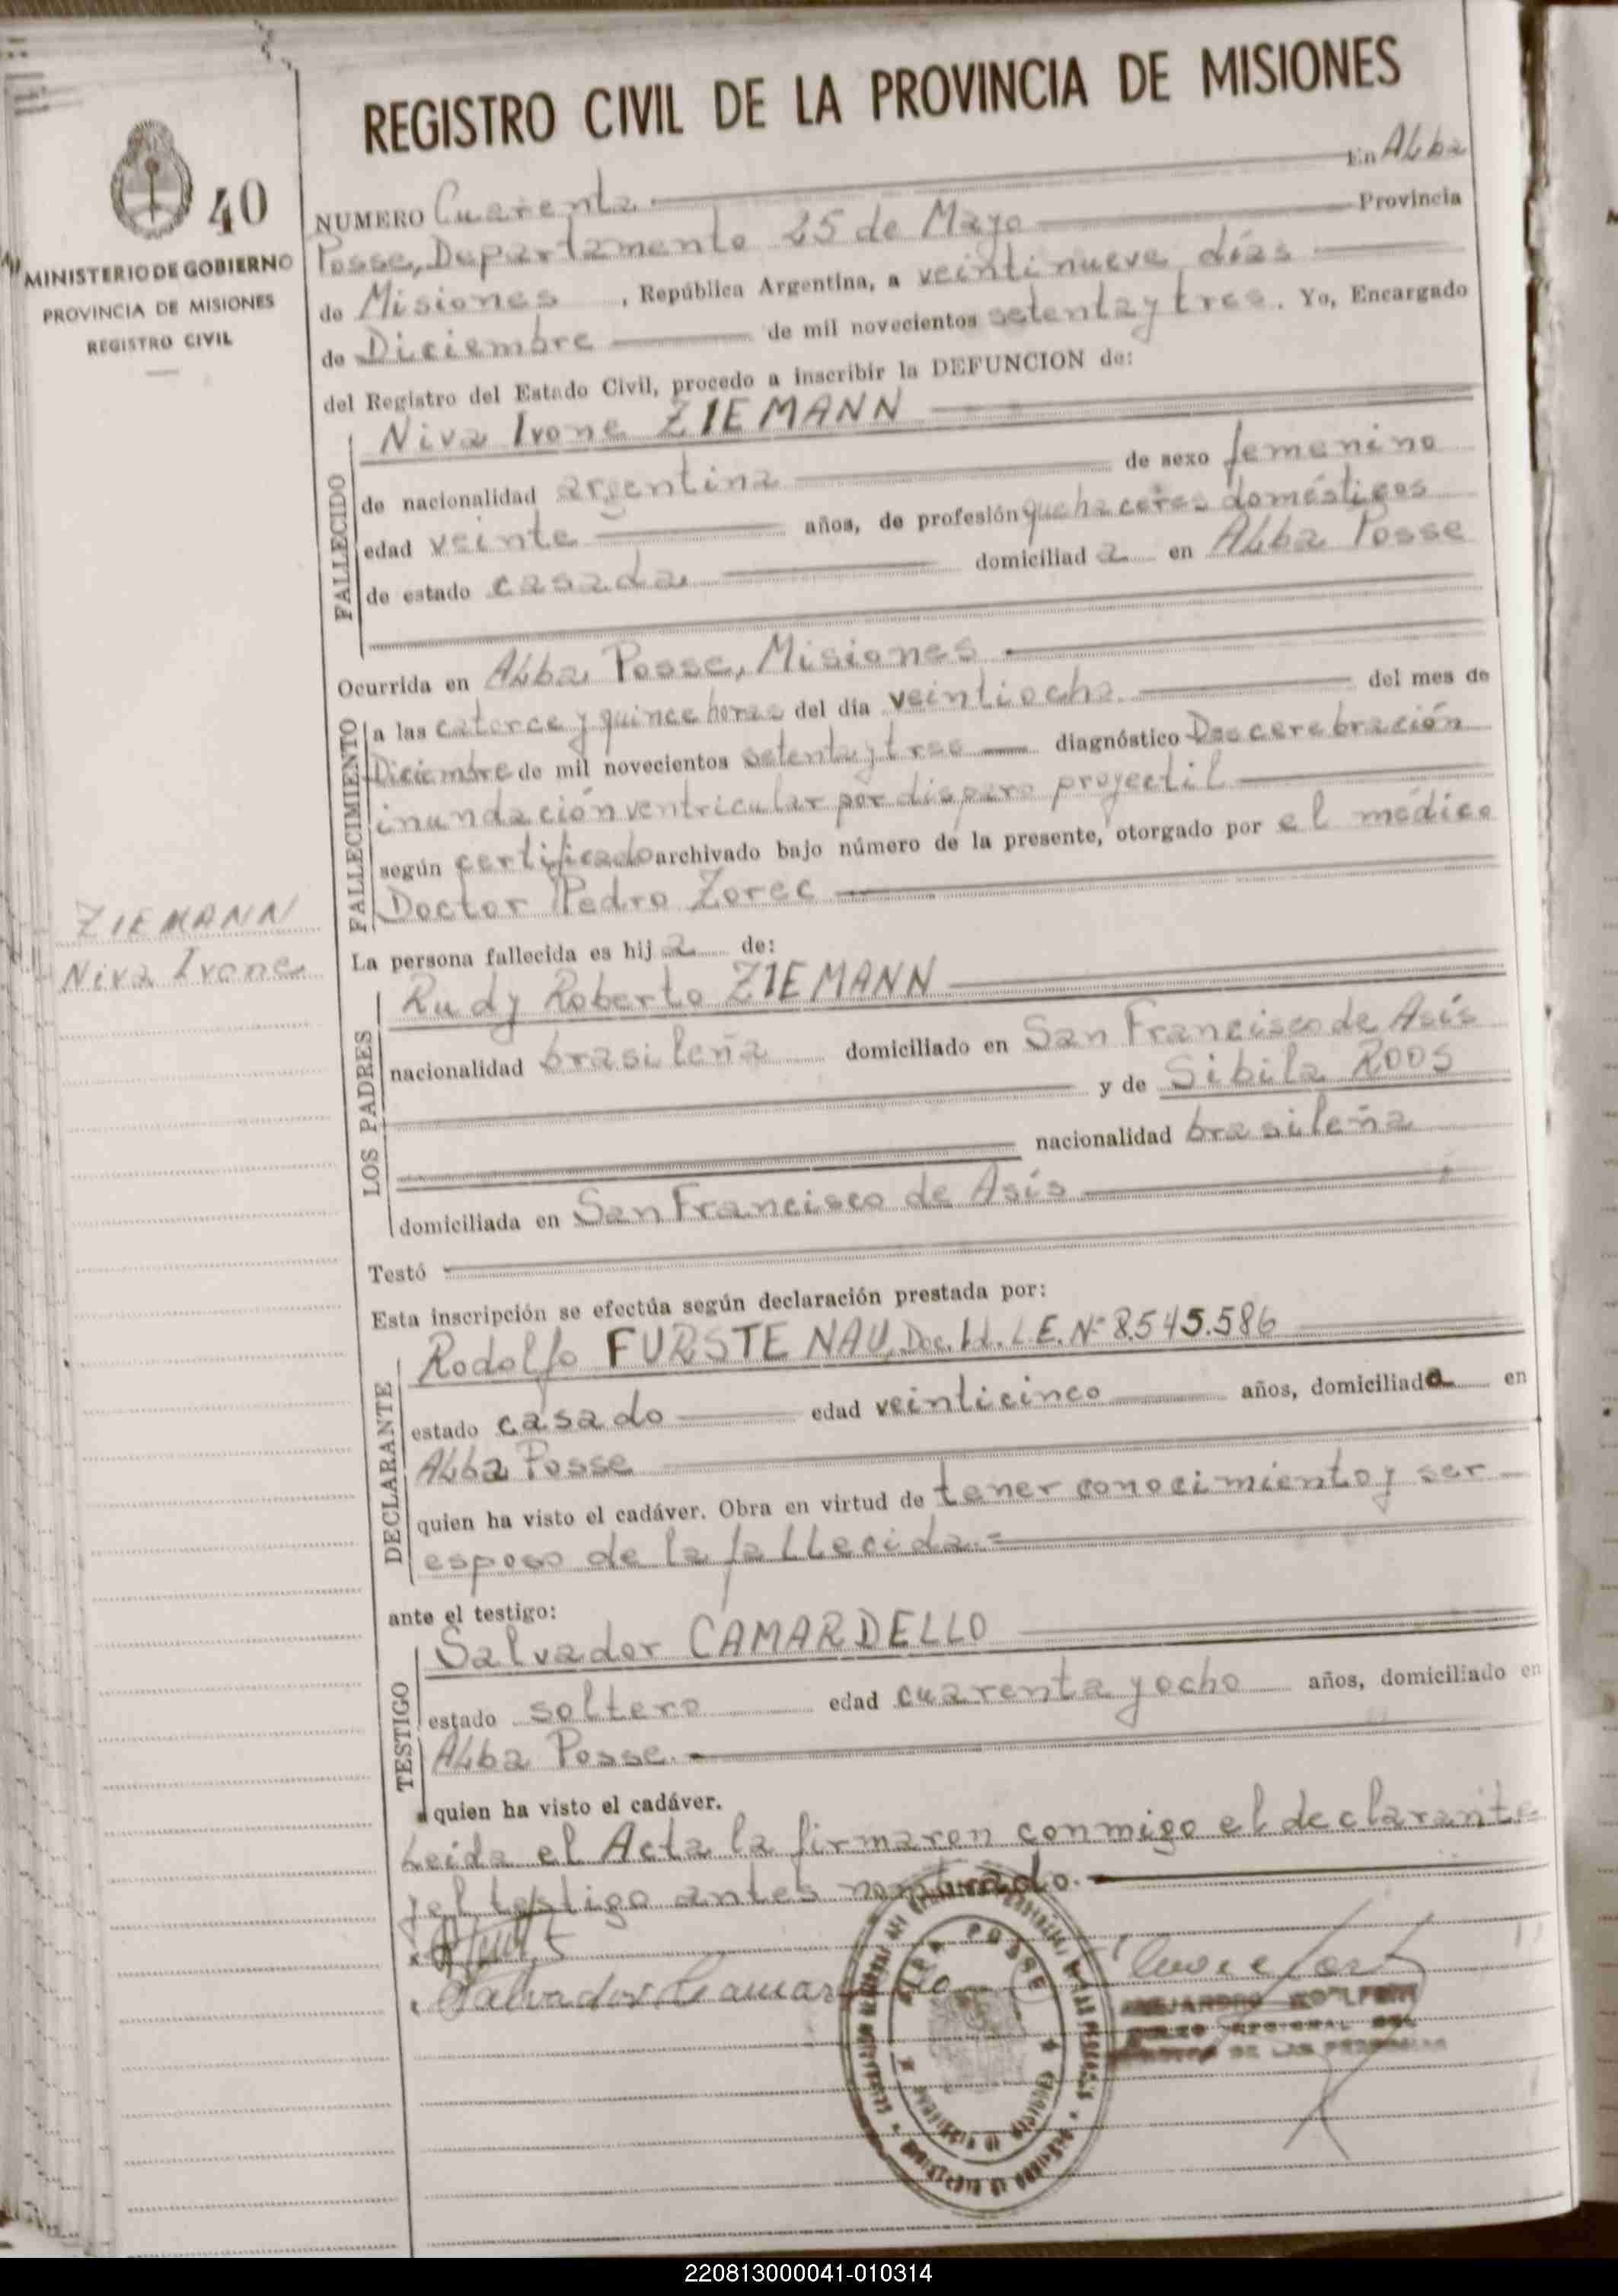 REGISTRO CIVIL DE LA PROVINCIA DE MISIONES
40
MINISTERIO DE GOBIERNO
PROVINCIA DE MISIONES
REGISTRO CIVIL
ZIEMANN
Niva Ivone
NUMERO Cuarenta En Alba
Posse, Departamento 25 de Mayo Provincia
de Misiones, República Argentina, a veintinueve días
de Diciembre de mil novecientos setenta y tres. Yo, Encargado
del Registro del Estado Civil, procedo a inscribir la DEFUNCION de:
FALLECIDO
Niva Ivone ZIEMANN
de nacionalidad argentina de sexo femenino
edad veinte años, de profesión quehaceres domésticos
de estado casada domiciliada en Alba Posse
Ocurrida en Alba Posse, Misiones
FALLECIMIENTO
a las catorce y quince horas del día veintiocho del mes de
Diciembre de mil novecientos setenta y tres diagnóstico Descerebración
inundación ventricular por disparo proyectil
según certificado archivado bajo número de la presente, otorgado por el médico
Doctor Pedro Zorec
La persona fallecida es hija de:
LOS PADRES
Rudy Roberto ZIEMANN
nacionalidad brasileña domiciliado en San Francisco de Asís
y de Sibila ROOS
nacionalidad brasileña
domiciliada en San Francisco de Asís
Testó
Esta inscripción se efectúa según declaración prestada por:
DECLARANTE
Rodolfo FURSTENAU, Doc. Id. L.E. Nº 8.545.586
estado casado edad veinticinco años, domiciliado en
Alba Posse
quien ha visto el cadáver. Obra en virtud de tener conocimiento y ser
esposo de la fallecida.=
ante el testigo:
TESTIGO
Salvador CAMARDELLO
estado soltero edad cuarenta y ocho años, domiciliado en
Alba Posse.
quien ha visto el cadáver.
Leida el Acta la firmaron conmigo el declarante
y el testigo antes nombrado.
Salvador Camardello
ALBA POSSE
220813000041-010314